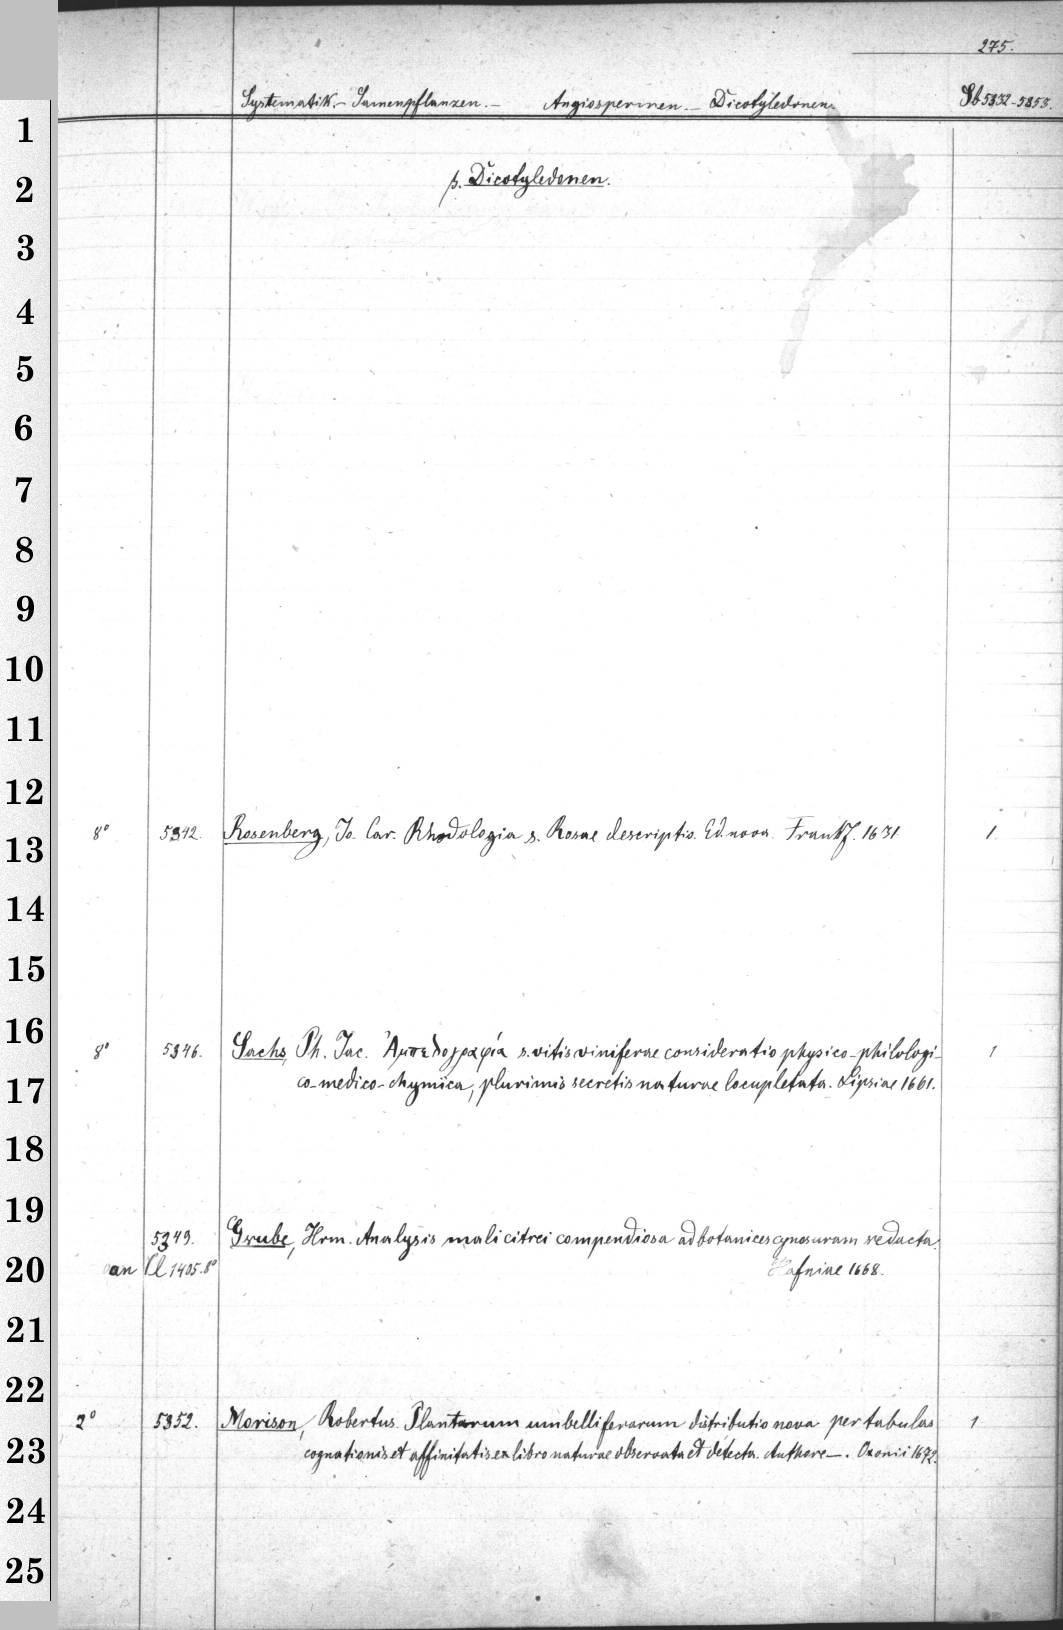 275.
Systematik. - Samenpflanzen. - Angiospermen. - Dicotyledonen. Sb 5332-5353.
1
2
β. Dicotyledonen.
3
4
5
6
7
8
9
10
11
12
8° 5342. Rosenberg, Jo. Car. Rhodologia s. Rosae descriptio. Ed. nova. Frankf. 1631 1
13
14
15
16
8° 5346. Sachs, Ph. Jac. Ἀμπελογραφία s. vitis viniferae consideratio physico-philologi- 1
17 co-medico-chymica, plurimis secretis naturae locupletata. Lipsiae 1661.
18
19
5349. Grube, Hrm. Analysis mali citrei compendiosa ad botanices cynosuram redacta.
20 an Cl 1405. 8° Hafniae 1668.
21
22
2° 5352. Morison, Robertus. Plantarum umbelliferarum distributio nova per tabulas 1
23 cognationis et affinitatis ex libro naturae observata et detecta. Authore —. Oxonii 1672.
24
25